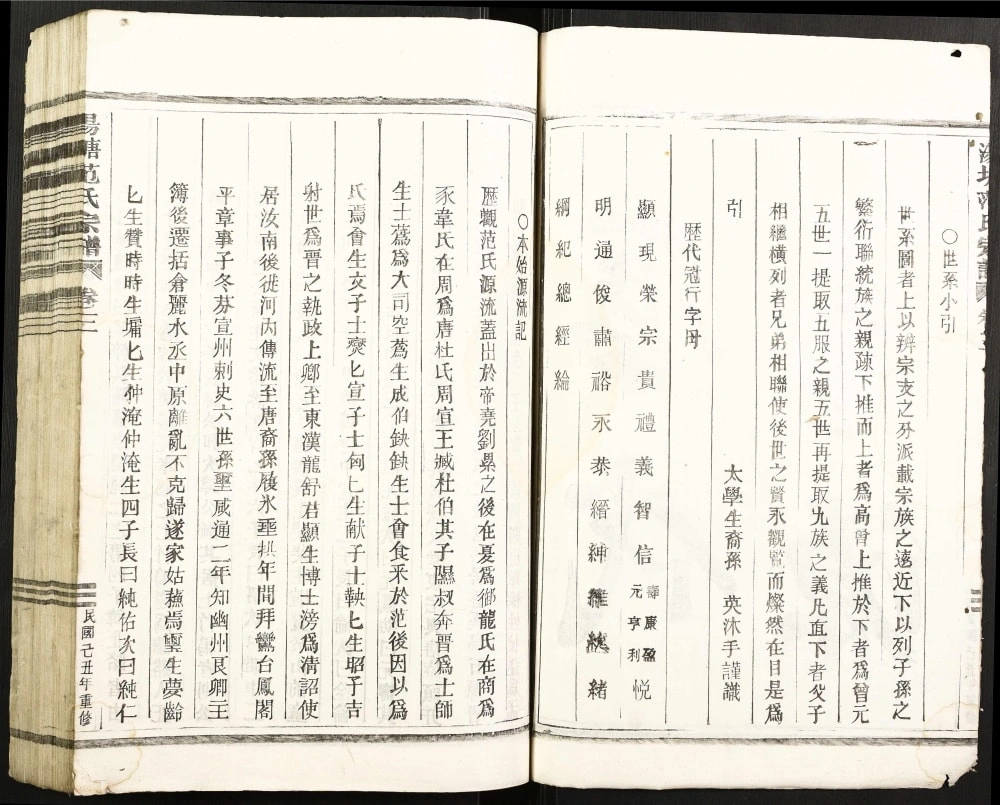 ○世系小引
世系圖者上以辨宗支之分派載宗族之遠近下以列子孫之
繁衍聯統族之親疎下推而上者爲高曾上推於下者爲曾元
五世一提取五服之親五世再提取九族之義凡直下者父子
相繼橫列者兄弟相聯使後世之賢永觀覽而燦然在目是爲
引
太學生裔孫 英沐手謹識
歷代冠行字母
顯現榮宗貴禮義智信元亨利 壽康盈悦
明通俊肅裕永泰縉紳維統緒
綱紀總經綸
○本始源流記
歷觀范氏源流蓋出於帝堯劉累之後在夏爲御龍氏在商爲
豕韋氏在周爲唐杜氏周宣王滅杜伯其子隰叔奔晋爲士師
生士蔿爲大司空蔿生成伯缺缺生士會食釆於范後因以爲
氏焉會生文子士爕匕宣子士匄匕生献子士鞅匕生昭子吉
射世爲晋之執政上卿至東漢龍舒君顯生博士滂爲清詔使
居汝南後徙河内傳流至唐裔孫履氷垂拱年間拜鸞台鳳閣
平章事子冬芬宣州刺史六世孫璽咸通二年知幽州艮卿主
簿後遷括倉麗水丞中原離亂不克歸遂家姑蘇焉璽生夢齡
匕生贊時時生墉匕生仲淹仲淹生四子長曰純佑次曰純仁
湯塘范氏宗譜
卷三
民國己丑年重修